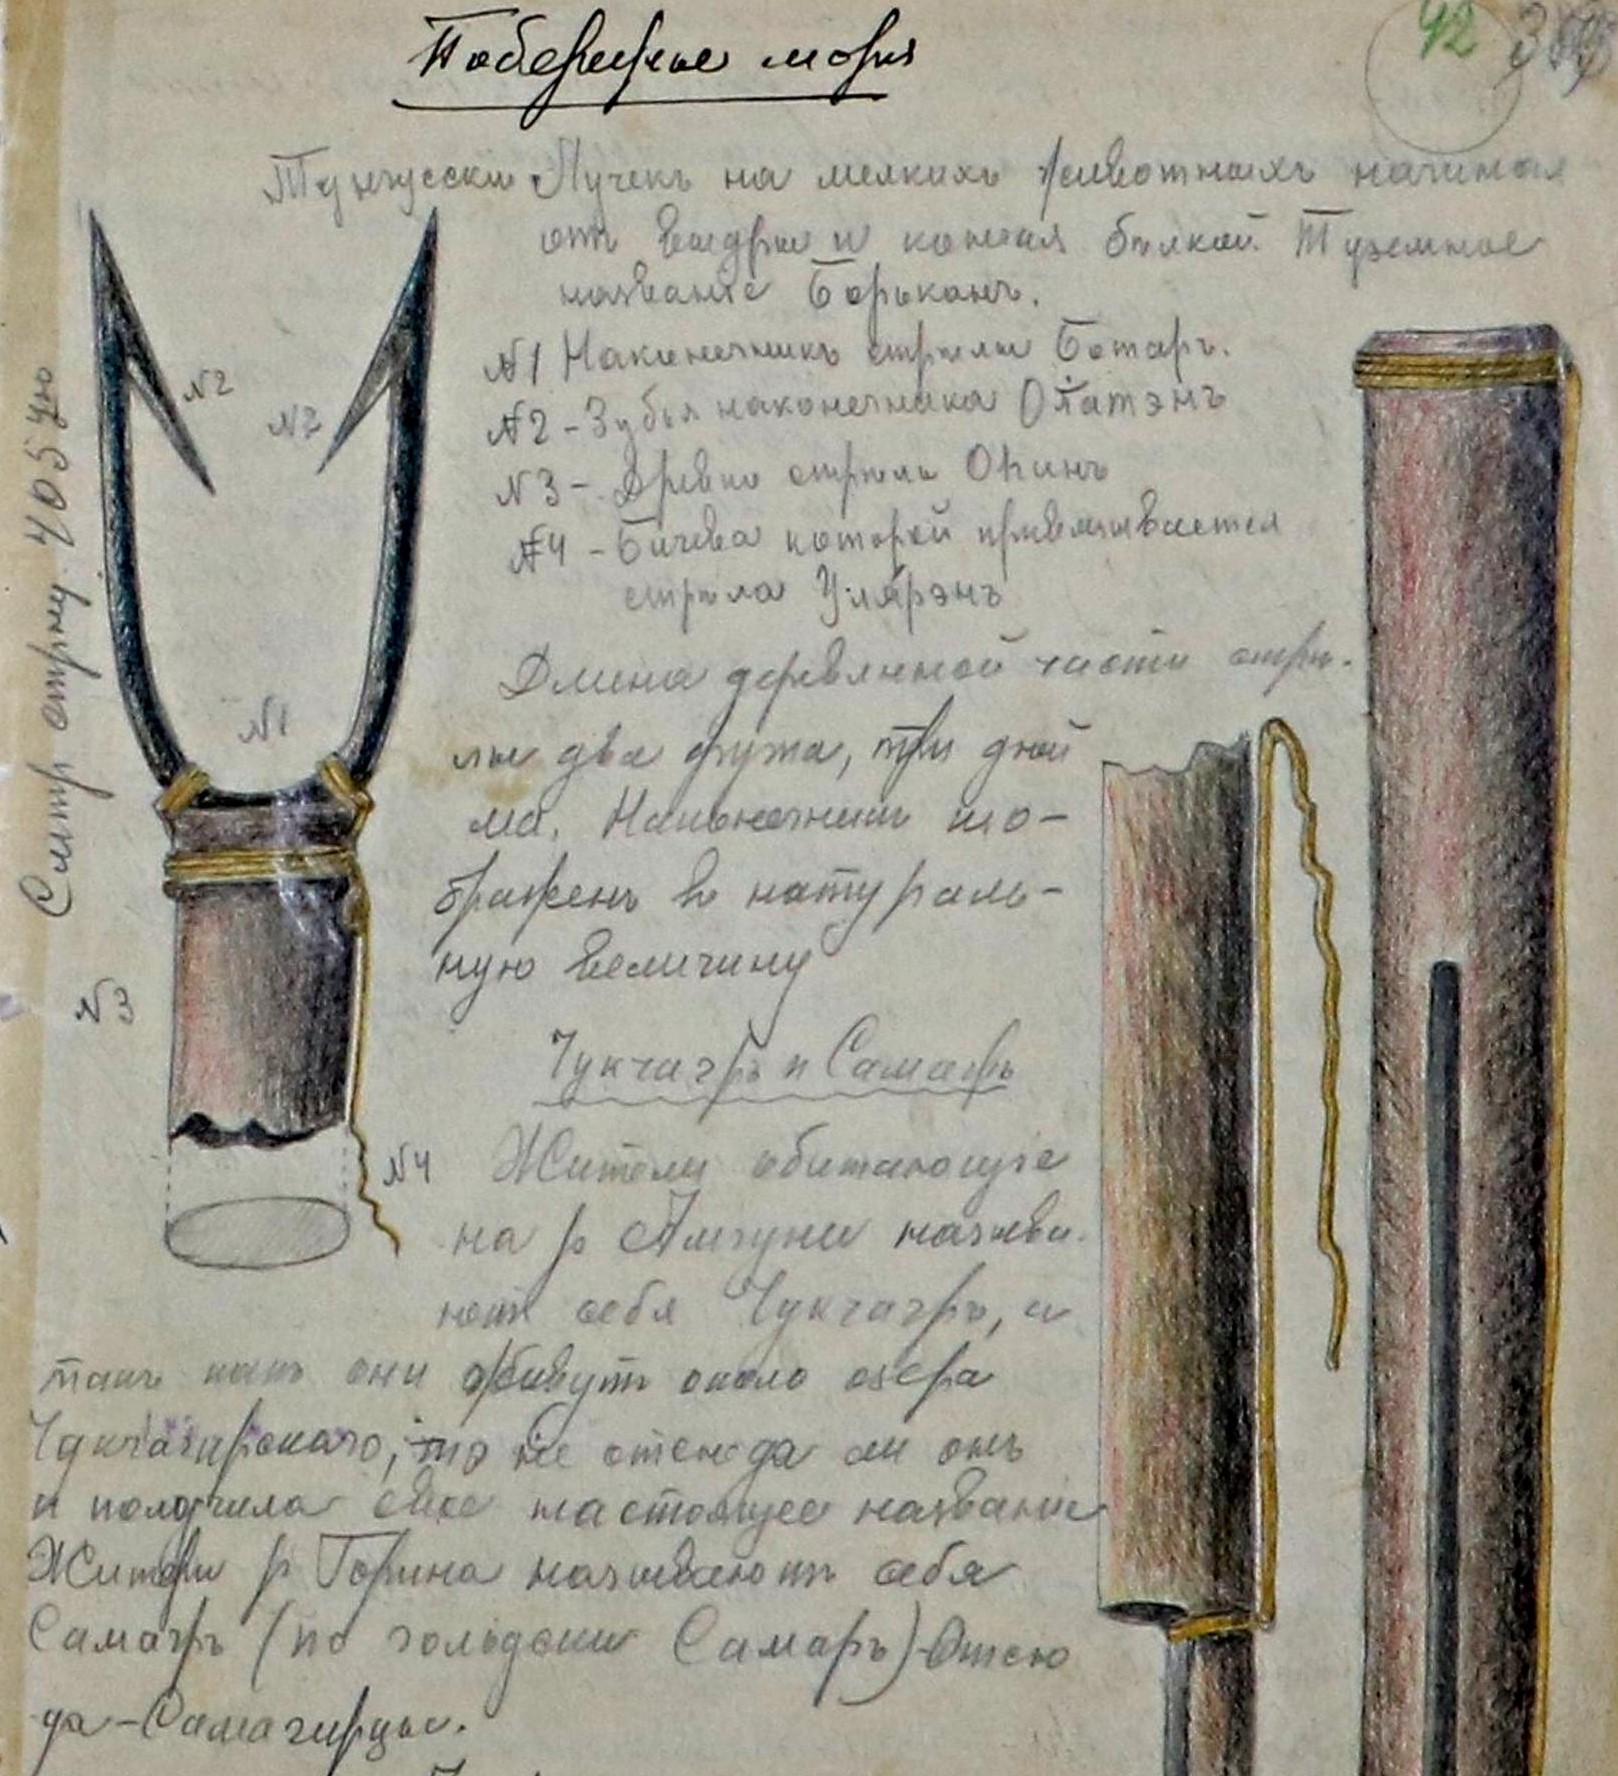 Побережье моря
42
Тунгусский Лучекъ на мелкихъ животныхъ начиная
от выдры и кончая белкой. Туземное
название Борьканъ.
№1 Наконечникъ стрелы Ботаръ.
№2 - Зубья наконечника
№3 - Древко стрелы
№4 - Бичева которой привязывается
стрела
Длина деревянной части стре-
лы два фута, три дюй
ма. Наконечник изо-
браженъ в натураль-
ную величину
Чукчагръ и Самагръ
Жители обитающие
на р Амгуни называ
ют себя Чукчагръ, и
такъ какъ они живут около озера
Чукчагирского, то не отсюда ли онъ
и получила свое настоящее название
Жители р Горина называют себя
Самагръ (по гольдски Самаръ) Отсю
да - Самагирцы.
Смотр страну 405ую
№2
№2
№1
№3
№4